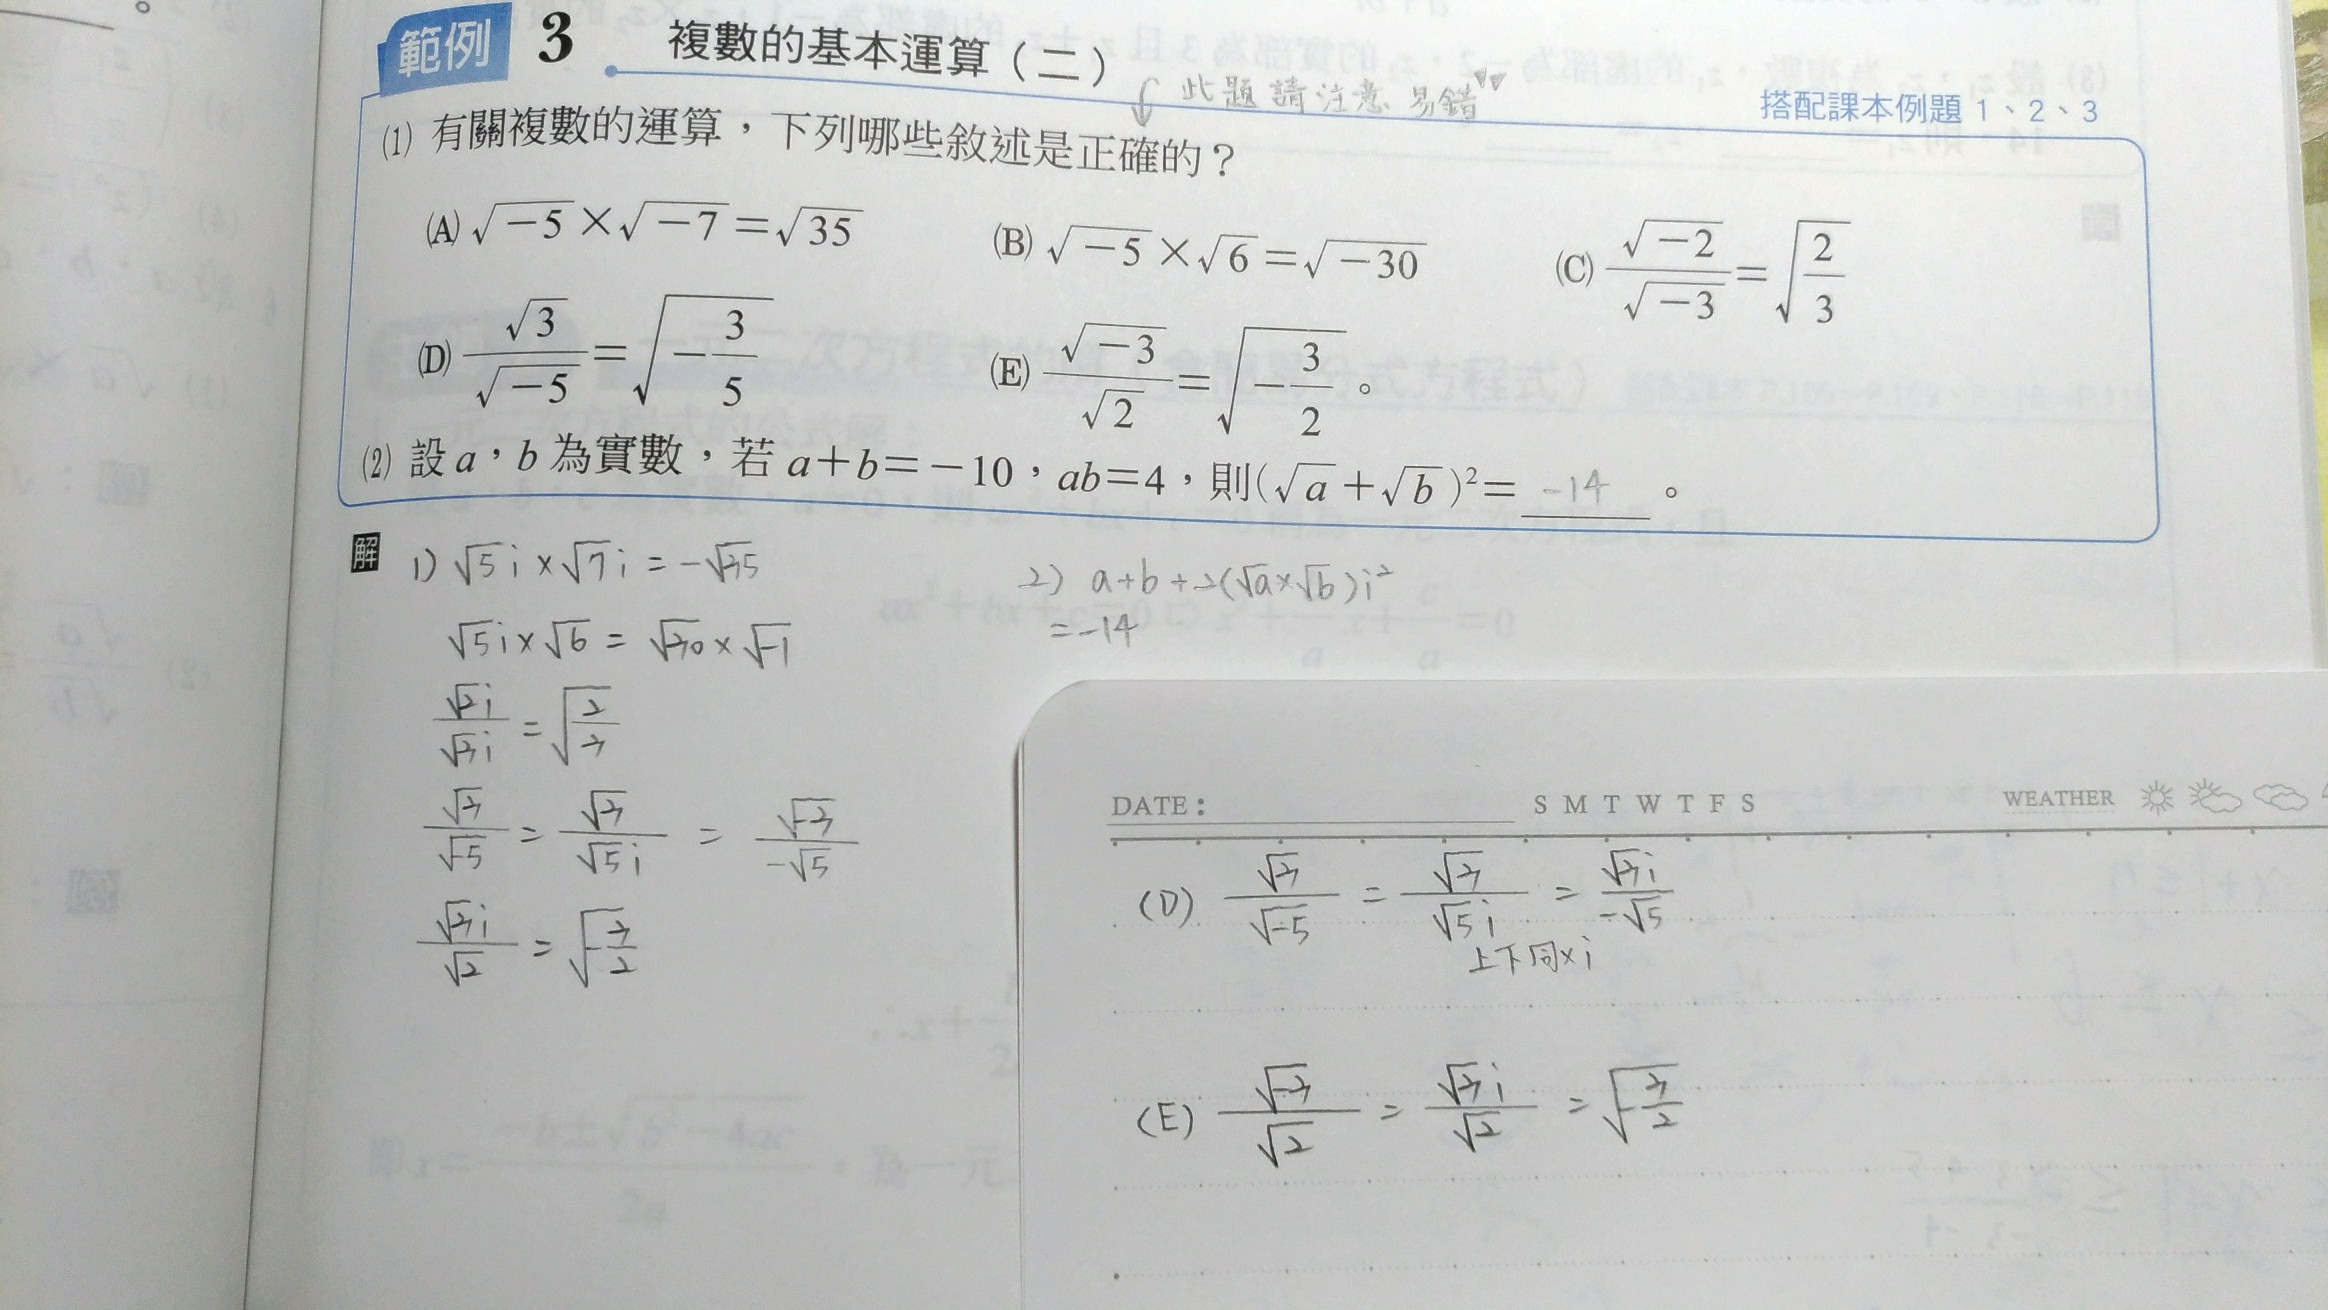 範例 3 複數的基本運算(二)
此題請注意 易錯
搭配課本例題 1、2、3
(1) 有關複數的運算,下列哪些敘述是正確的?
(A) √-5 × √-7 = √35 (B) √-5 × √6 = √-30 (C) √-2 / √-3 = √(2/3)
(D) √3 / √-5 = √(-3/5) (E) √-3 / √2 = √(-3/2)。
(2) 設 a,b 為實數,若 a+b=-10,ab=4,則(√a+√b)²= -14 。
解
1) √5 i × √7 i = -√35
√5 i × √6 = √30 × √-1
√2 i / √3 i = √(2/3)
√3 / √-5 = √3 / √5 i = √-3 / -√5
√3 i / √2 = √(-3/2)
2) a+b+2(√a×√b)i²
=-14
DATE: S M T W T F S WEATHER
(D) √3 / √-5 = √3 / √5 i = √3 i / -√5
上下同×i
(E) √-3 / √2 = √3 i / √2 = √(-3/2)